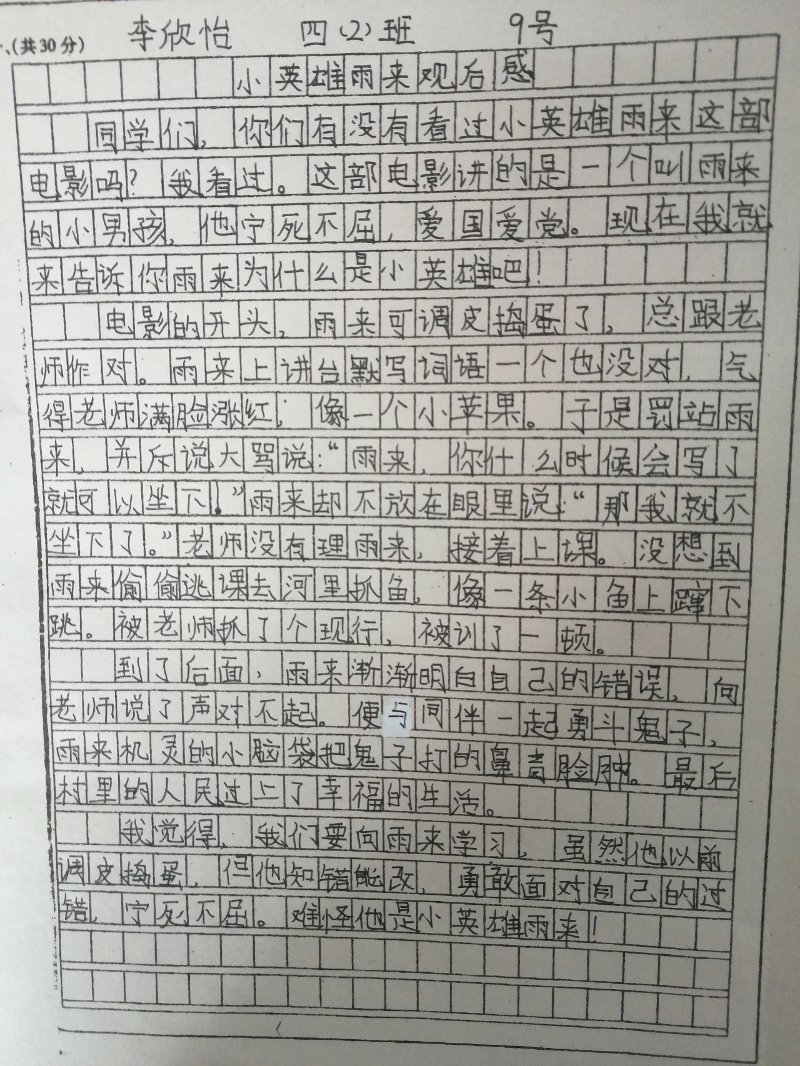 、（共30分） 李欣怡 四（2）班 9号
小英雄雨来观后感
同学们，你们有没有看过小英雄雨来这部
电影吗？我看过。这部电影讲的是一个叫雨来
的小男孩，他宁死不屈，爱国爱党。现在我就
来告诉你雨来为什么是小英雄吧！
电影的开头，雨来可调皮捣蛋了，总跟老
师作对。雨来上讲台默写词语一个也没对，气
得老师满脸涨红，像一个小苹果。于是罚站雨
来，并斥说大骂说：“雨来，你什么时候会写了
就可以坐下！”雨来却不放在眼里说：“那我就不
坐下了。”老师没有理雨来，接着上课。没想到
雨来偷偷逃课去河里抓鱼，像一条小鱼上蹿下
跳。被老师抓了个现行，被训了一顿。
到了后面，雨来渐渐明白自己的错误，向
老师说了声对不起。便与同伴一起勇斗鬼子，
雨来机灵的小脑袋把鬼子打的鼻青脸肿。最后
村里的人民过上了幸福的生活。
我觉得，我们要向雨来学习，虽然他以前
调皮捣蛋，但他知错能改，勇敢面对自己的过
错，宁死不屈。难怪他是小英雄雨来！